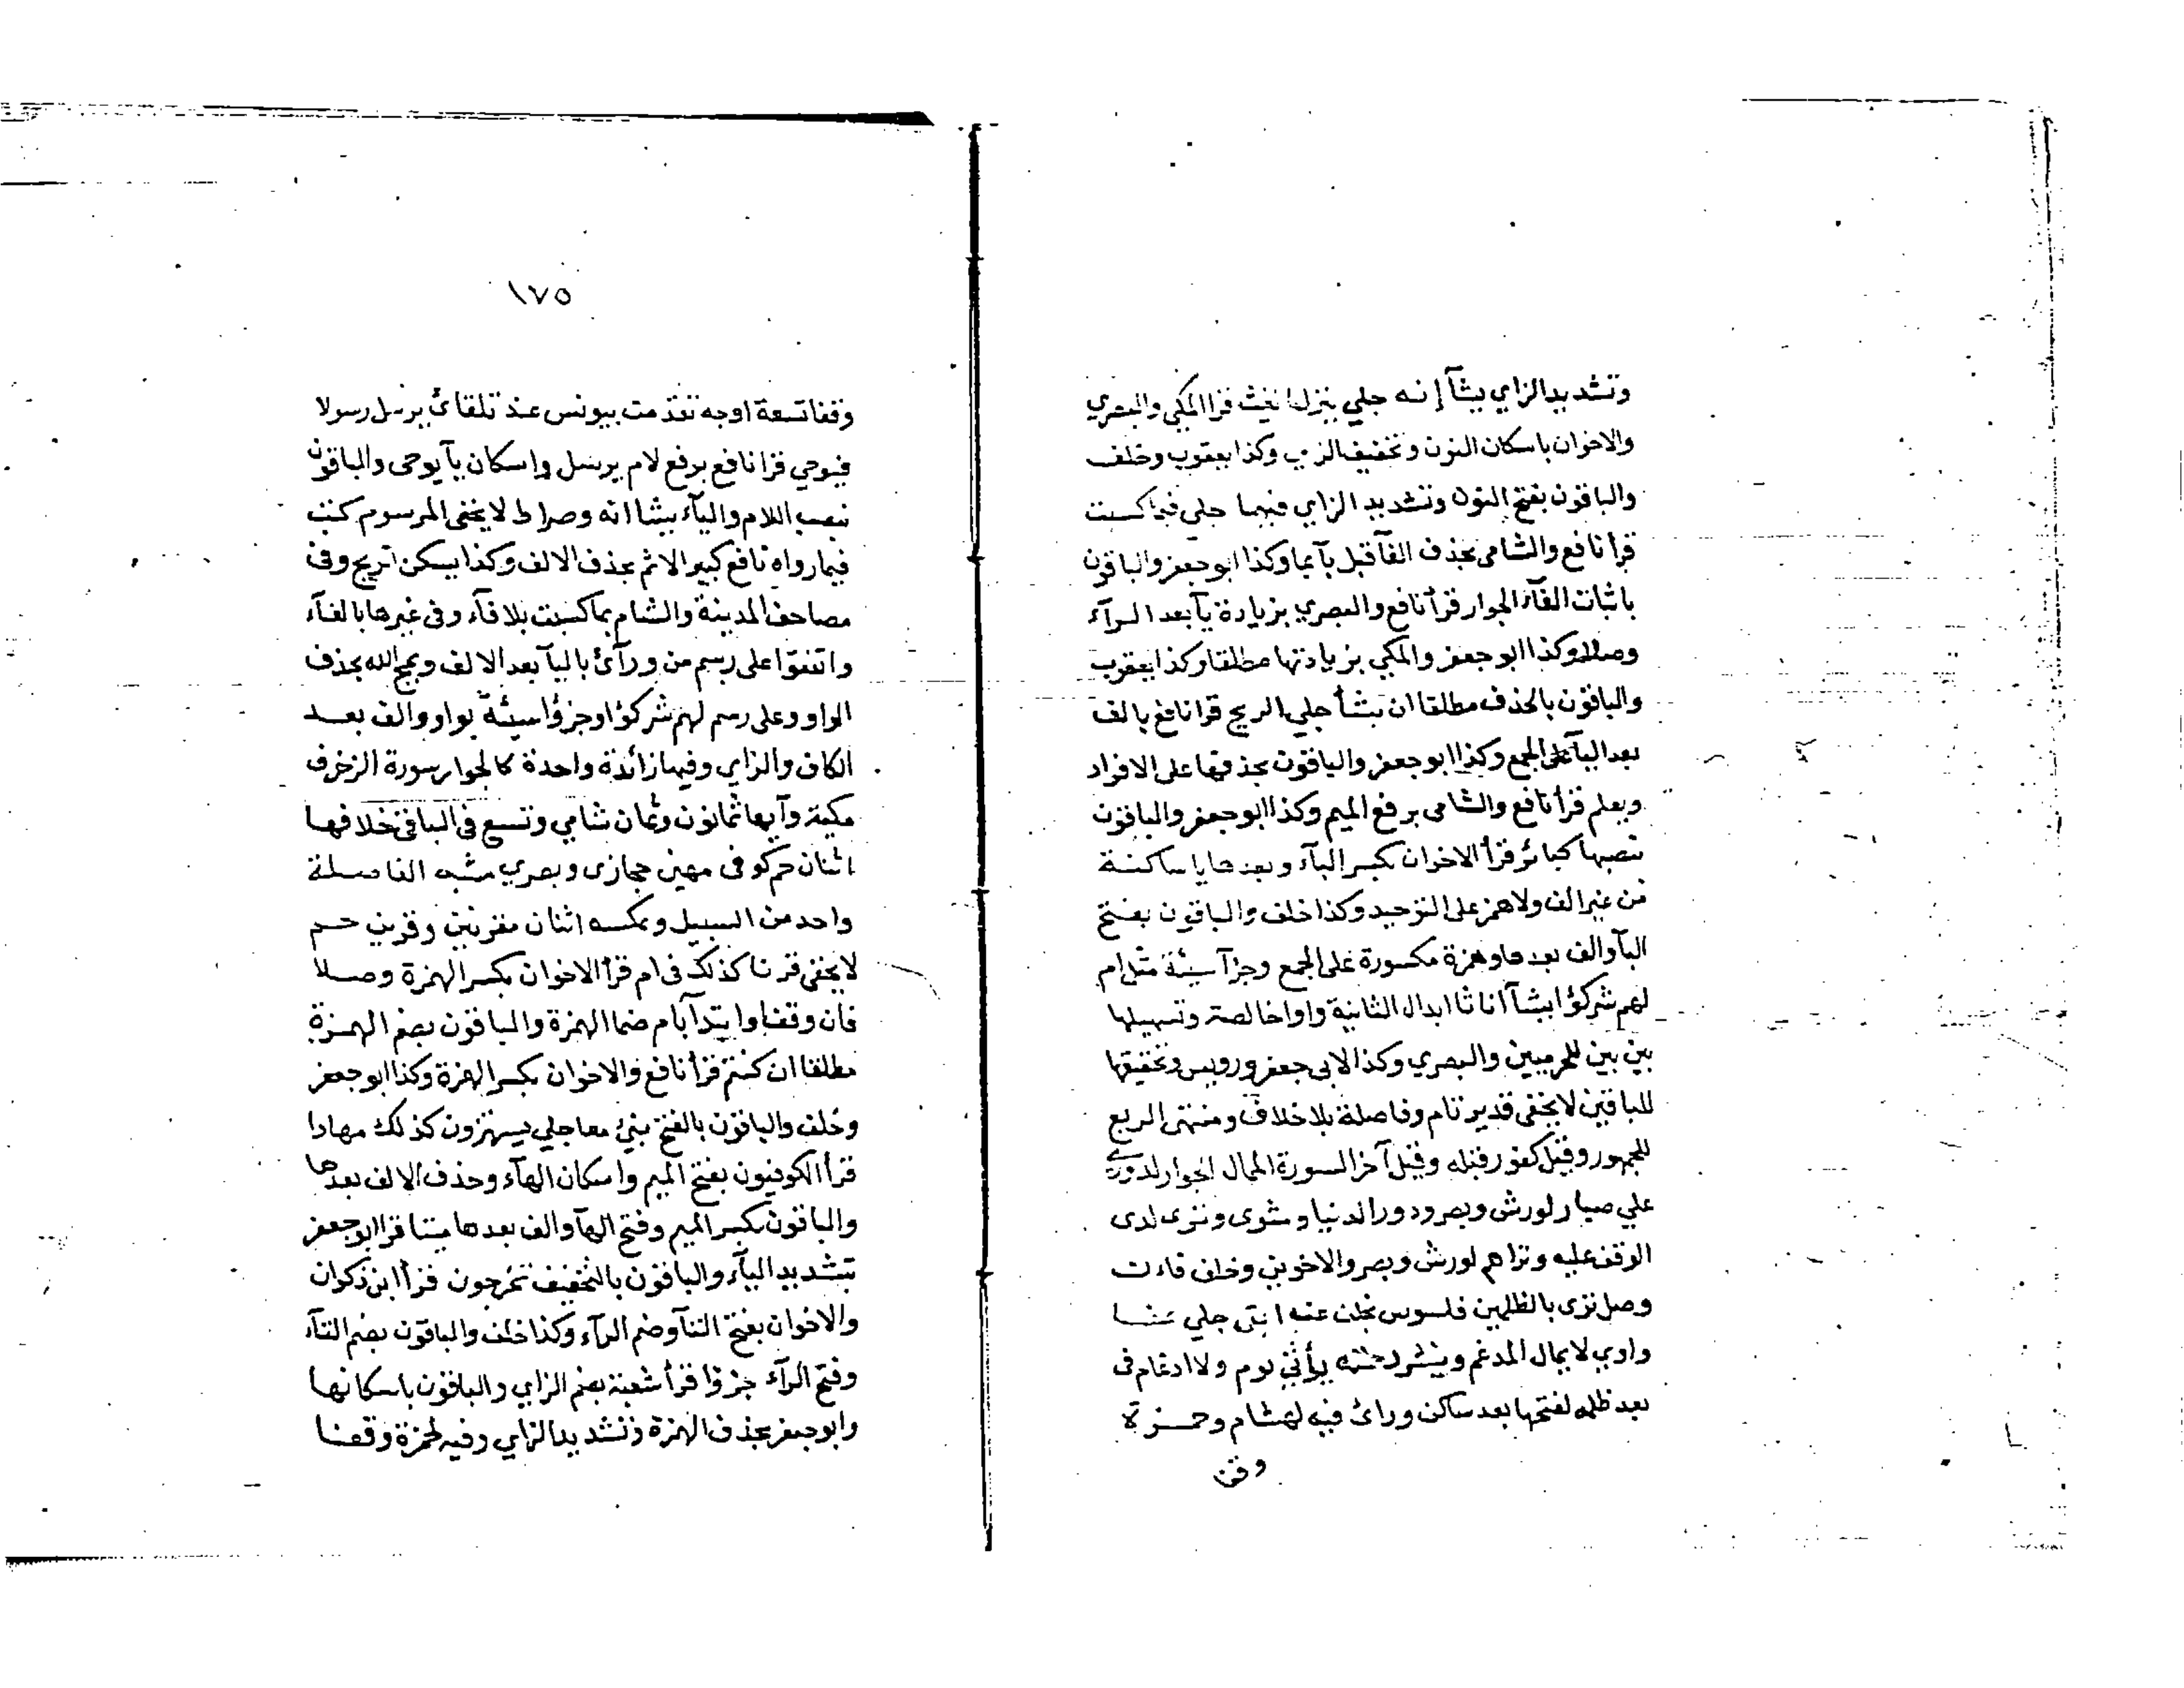 وتشديد الزاي يشآ إنه جلي ينزل الغيث قرا المكي والبصري
والاخوان باسكان النون وتخفيف الزاي وكذا يعقوب وخلف
والباقون بفتح النون وتشديد الزاي فيهما جلي فبما كسبت
قرأ نافع والشامي بحذف الفآ قبل بآ بما وكذا ابو جعفر والباقون
باثبات الفآء الجوار قرأ نافع والبصري بزيادة يآ بعد الرآء
وصلا وكذا ابو جعفر والمكي بزيادتها مطلقا وكذا يعقوب
والباقون بالحذف مطلقا ان يشأ جلي الريح قرا نافع بالف
بعد اليآ على الجمع وكذا ابو جعفر والباقون بحذفها على الافراد
ويعلم قرأ نافع والشامي برفع الميم وكذا ابو جعفر والباقون
بنصبها كبائر قرأ الاخوان بكسر البآء وبعدها يا ساكنة
من غير الف ولا همز على التوحيد وكذا خلف والباقون بفتح
البآ والف بعدها وهمزة مكسورة على الجمع وجزآ سيئة مثل ام
لهم شركؤا يشآ اناثا ابدال الثانية واوا خالصة وتسهيلها
بين بين للحرميين والبصري وكذا لابي جعفر ورويس وتحقيقها
للباقين لا يخفى قدير تام وفاصلة بلا خلاف ومنتهى الربع
للجمهور وقيل كفور قبله وقيل آخر السورة الممال الجوار لدوري
علي صبار لورش وبصر ودورا الدنيا وشورى وترى لدى
الوقف عليه وتراهم لورش وبصر والاخوين وخلف فان
وصل ترى بالظلمين فلسوس بخلف عنه ابقى جلي عفا
واوي لا يمال المدغم وينشر رحمته يأتي يوم ولا ادغام في
بعد ظلمه لفتحها بعد ساكن ورائ فيه لهشام وحمزة
وقفا
١٧٥
وقفا تسعة اوجه تقدمت بيونس عند تلقائ يرسل رسولا
فيوحي قرا نافع برفع لام يرسل واسكان يآ يوحى والباقون
بنصب اللام واليآء يشا انه وصراط لا يخفى المرسوم كتب
فيما رواه نافع كبير الاثم بحذف الالف وكذا يسكن الريح وفي
مصاحف المدينة والشام بما كسبت بلا فآء وفي غيرها بالفآء
واتفقوا على رسم من ورآئ باليآ بعد الالف ويمح الله بحذف
الواو وعلى رسم لهم شركؤا وجزؤا سيئة بواو والف بعد
الكاف والزاي وفيها زائدة واحدة كالجوار سورة الزخرف
مكية وآيها ثمانون وثمان شامي وتسع في الباقي خلافها
اثنان حم كوفي مهين حجازي وبصري مشبه الفاصلة
واحد من السبيل وعكسه اثنان مقرنين وقرين حم
لا يخفى قرنا كذلك في ام قرأ الاخوان بكسر الهمزة وصلا
فان وقفا وابتدآ بام ضما الهمزة والباقون بضم الهمزة
مطلقا ان كنتم قرأ نافع والاخوان بكسر الهمزة وكذا ابو جعفر
وخلف والباقون بالفتح نبيء معا جلي يستهزون كذلك مهادا
قرأ الكوفيون بفتح الميم واسكان الهآء وحذف الالف بعدها
والباقون بكسر الميم وفتح الهآ والف بعدها ميتا قرا ابو جعفر
بتشديد اليآء والباقون بالتخفيف تخرجون قرأ ابن ذكوان
والاخوان بفتح التآ وضم الرآء وكذا خلف والباقون بضم التآء
وفتح الرآء جزؤا قرأ شعبة بضم الزاي والباقون باسكانها
وابو جعفر بحذف الهمزة وتشديد الزاي وفيه لحمزة وقفا